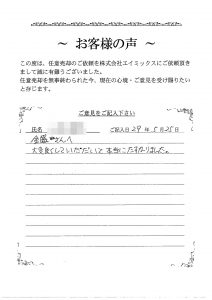 ～ お客様の声 ～
この度は、任意売却のご依頼を株式会社エイミックスにご依頼頂き
まして誠に有難うございました。
任意売却を無事終われた今、現在の心境・ご意見を受け賜りたい
と存じます。
ご意見をご記入下さい
氏名 ご記入日 29年 5月 25日
さんへ
大変良くしていただいて 本当にたすかりました。